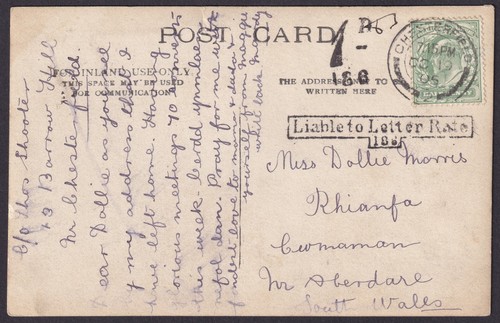 POST CARD
FOR INLAND USE ONLY
THIS SPACE MAY BE USED
FOR COMMUNICATION
THE ADDRESS ONLY TO BE
WRITTEN HERE
1-
186
CHESTERFIELD
7.15PM
OC
05
Liable to Letter Rate
186
c/o Thos Shooter
73 Barrow Hill
Nr Chesterfield
Dear Dollie as you will
see by my address that I
have left home. Having
glorious meetings 70 converts
this week.
Pray for me with
fondest love to mama & dada &
yourself from Maggie
write back
Miss Dollie Morris
Rhianfa
Cwmaman
Nr Aberdare
South Wales